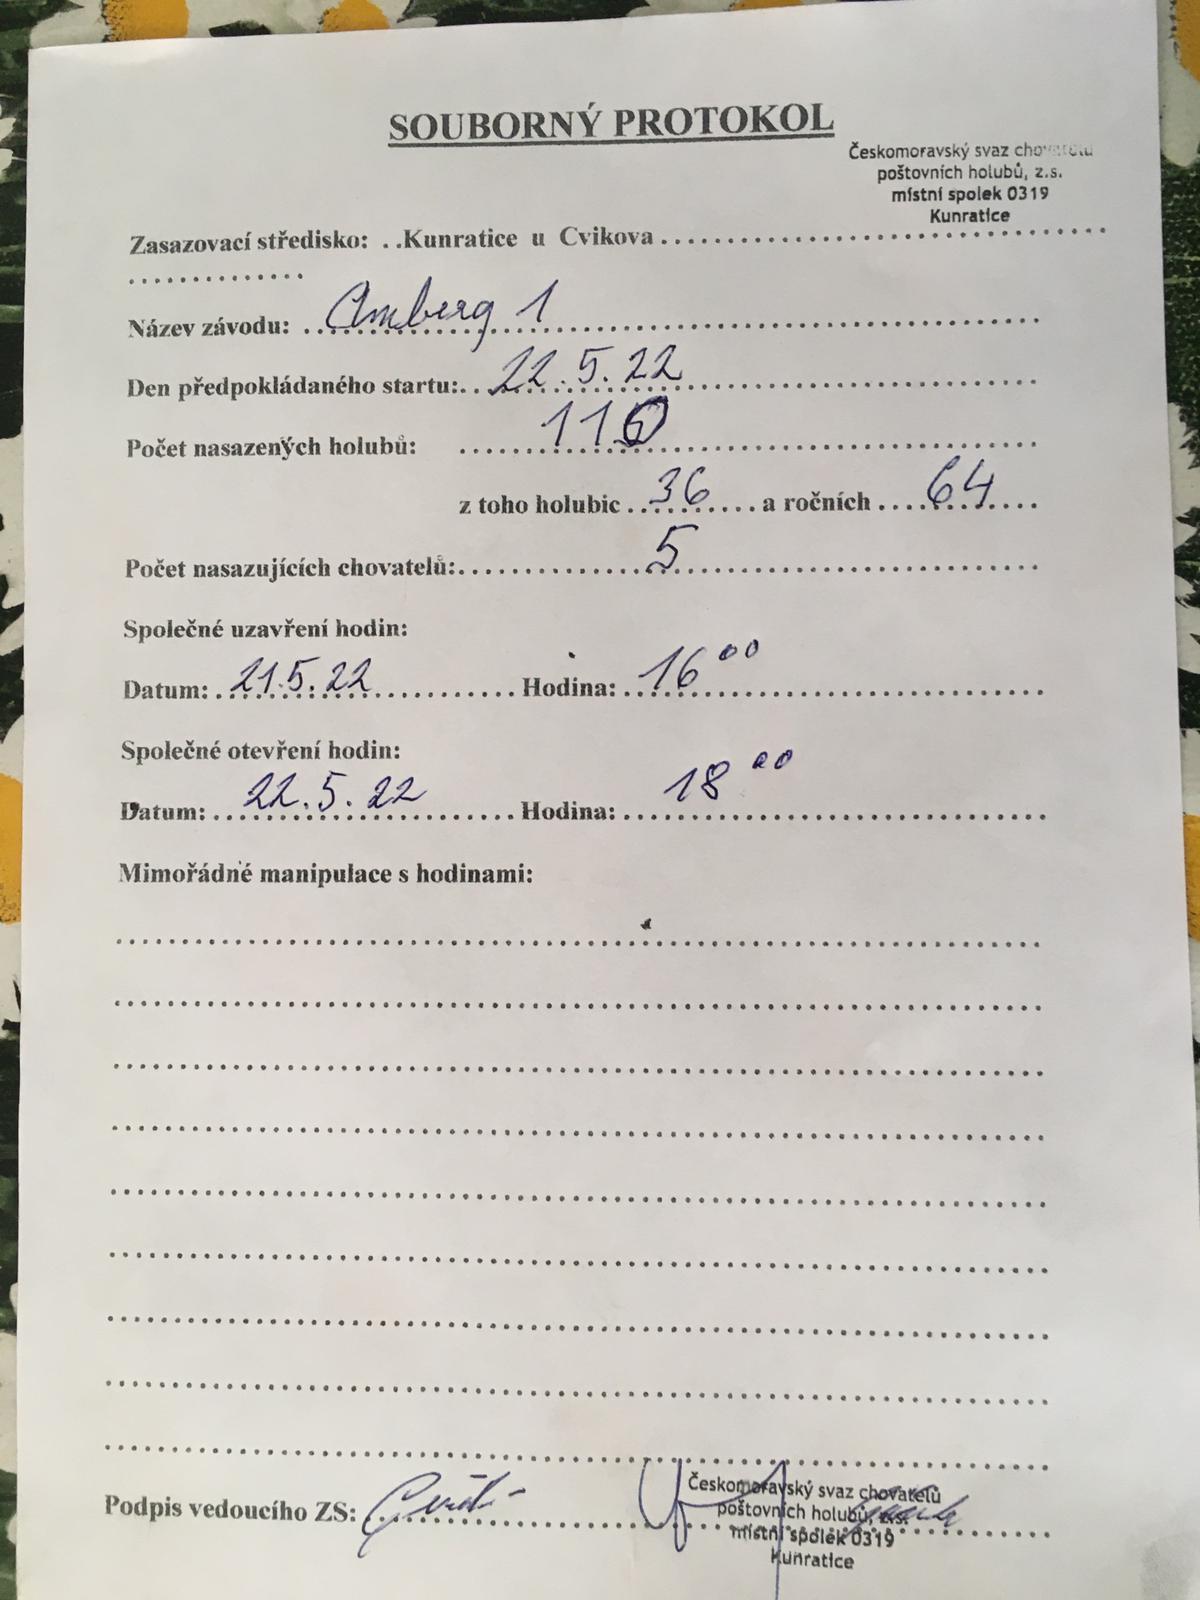 SOUBORNÝ PROTOKOL
Českomoravský svaz chovatelů
poštovních holubů, z.s.
místní spolek 0319
Kunratice
Zasazovací středisko: ..Kunratice u Cvikova......................................
..............
Název závodu: ...Amberg 1..................................................
Den předpokládaného startu:...22.5.22..............................
Počet nasazených holubů: ........110..............................
z toho holubic ..36....... a ročních ....64....
Počet nasazujících chovatelů:.................5............................
Společné uzavření hodin:
Datum:..21.5.22............ Hodina:..16⁰⁰............................
Společné otevření hodin:
Datum:...22.5.22........... Hodina:...18⁰⁰...........................
Mimořádné manipulace s hodinami:
........................................................................
........................................................................
........................................................................
........................................................................
........................................................................
........................................................................
........................................................................
........................................................................
........................................................................
Podpis vedoucího ZS:
Českomoravský svaz chovatelů
poštovních holubů, z.s.
místní spolek 0319
Kunratice